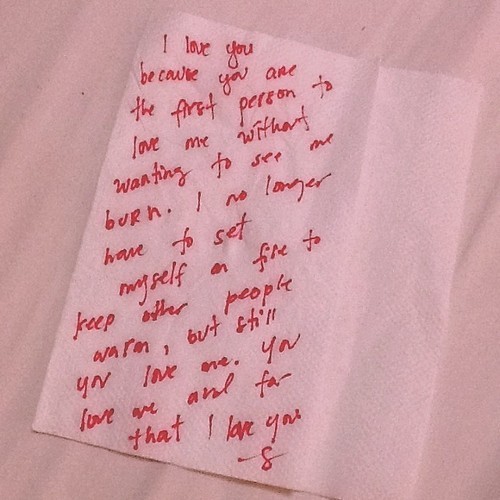 I love you
because you are
the first person to
love me without
wanting to see me
burn. I no longer
have to set
myself on fire to
keep other people
warm, but still
you love me. you
love me and for
that I love you.
-S